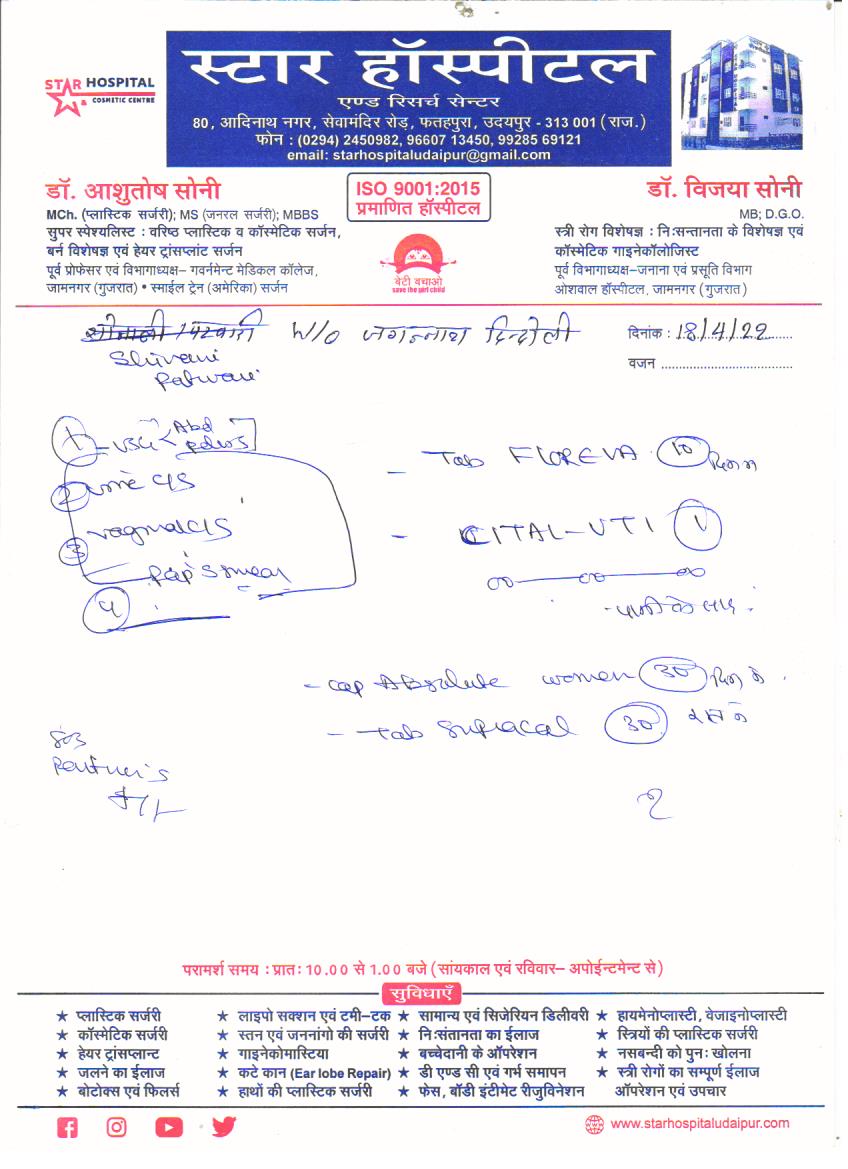 STAR HOSPITAL
& COSMETIC CENTRE
स्टार हॉस्पीटल
एण्ड रिसर्च सेन्टर
80, आदिनाथ नगर, सेवामंदिर रोड़, फतहपुरा, उदयपुर - 313 001 (राज.)
फोन : (0294) 2450982, 96607 13450, 99285 69121
email: starhospitaludaipur@gmail.com
डॉ. आशुतोष सोनी
MCh. (प्लास्टिक सर्जरी); MS (जनरल सर्जरी); MBBS
सुपर स्पेश्यलिस्ट : वरिष्ठ प्लास्टिक व कॉस्मेटिक सर्जन,
बर्न विशेषज्ञ एवं हेयर ट्रांसप्लांट सर्जन
पूर्व प्रोफेसर एवं विभागाध्यक्ष– गवर्नमेन्ट मेडिकल कॉलेज,
जामनगर (गुजरात) • स्माईल ट्रेन (अमेरिका) सर्जन
ISO 9001:2015
प्रमाणित हॉस्पीटल
बेटी बचाओ
save the girl child
डॉ. विजया सोनी
MB; D.G.O.
स्त्री रोग विशेषज्ञ : निःसन्तानता के विशेषज्ञ एवं
कॉस्मेटिक गाइनेकॉलोजिस्ट
पूर्व विभागाध्यक्ष–जनाना एवं प्रसूति विभाग
ओशवाल हॉस्पीटल, जामनगर (गुजरात)
W/o जगन्नाथ हिन्दोली
दिनांक : 18/4/22
Shivani
वजन
① - USG Abd
②
③ vaginal C/S
Pap smear
④
- Tab FLOREVA ⑩
- CITAL-UTI ①
- पानी के साथ
- cap Absolute women ㉚
- Tab Supracal ㉚
Partner's
परामर्श समय : प्रातः 10.00 से 1.00 बजे (सांयकाल एवं रविवार– अपोईन्टमेन्ट से)
सुविधाएँ
★ प्लास्टिक सर्जरी ★ लाइपो सक्शन एवं टमी–टक ★ सामान्य एवं सिजेरियन डिलीवरी ★ हायमेनोप्लास्टी, वेजाइनोप्लास्टी
★ कॉस्मेटिक सर्जरी ★ स्तन एवं जननांगो की सर्जरी ★ निःसंतानता का ईलाज ★ स्त्रियों की प्लास्टिक सर्जरी
★ हेयर ट्रांसप्लान्ट ★ गाइनेकोमास्टिया ★ बच्चेदानी के ऑपरेशन ★ नसबन्दी को पुनः खोलना
★ जलने का ईलाज ★ कटे कान (Ear lobe Repair) ★ डी एण्ड सी एवं गर्भ समापन ★ स्त्री रोगों का सम्पूर्ण ईलाज
★ बोटोक्स एवं फिलर्स ★ हाथों की प्लास्टिक सर्जरी ★ फेस, बॉडी इंटीमेट रीजुविनेशन ऑपरेशन एवं उपचार
www.starhospitaludaipur.com